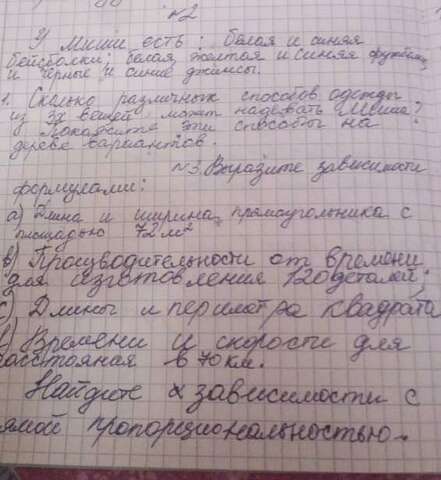 №2
У Миши есть: белая и синяя
бейсболки; белая, желтая и синяя футболки
и чёрные и синие джинсы.
1. Сколько различных способов одежды
из 3х вещей может надевать Миша?
Покажите эти способы на
дереве вариантов.
№3. Выразите зависимости
формулами:
а) Длина и ширина прямоугольника с
площадью 72 м²
b) Производительности от времени
для изготовления 120 деталей;
c) Длины и периметра квадрата
Времени и скорости для
расстояная в 70 км.
Найдите зависимости с
ямой пропорциональностью.